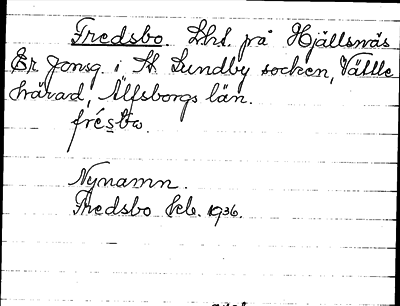 Fredsbo. Lht. på Hjällsnäs
Er Jonsg. i St Lundby socken, Vättle
härad, Älfsborgs län.
Nynamn.
Fredsbo feb. 1936.